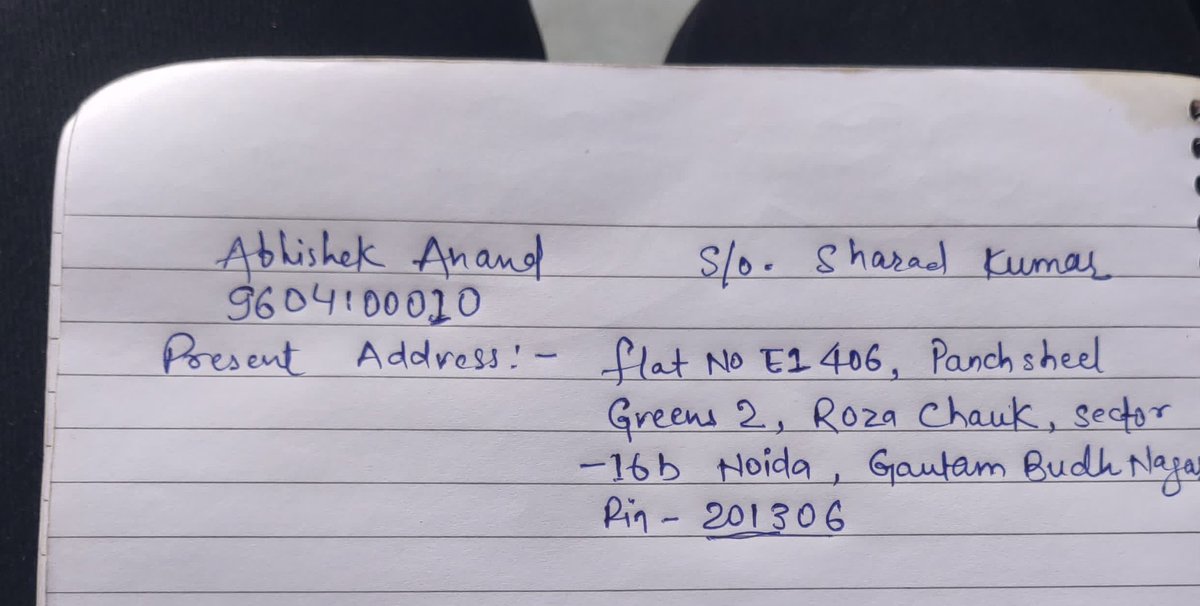 Abhishek Anand S/o. Sharad Kumar
9604100010
Present Address:- flat No E1 406, Panchsheel
Greens 2, Roza Chauk, sector
-16b Noida, Gautam Budh Nagar
Pin - 201306